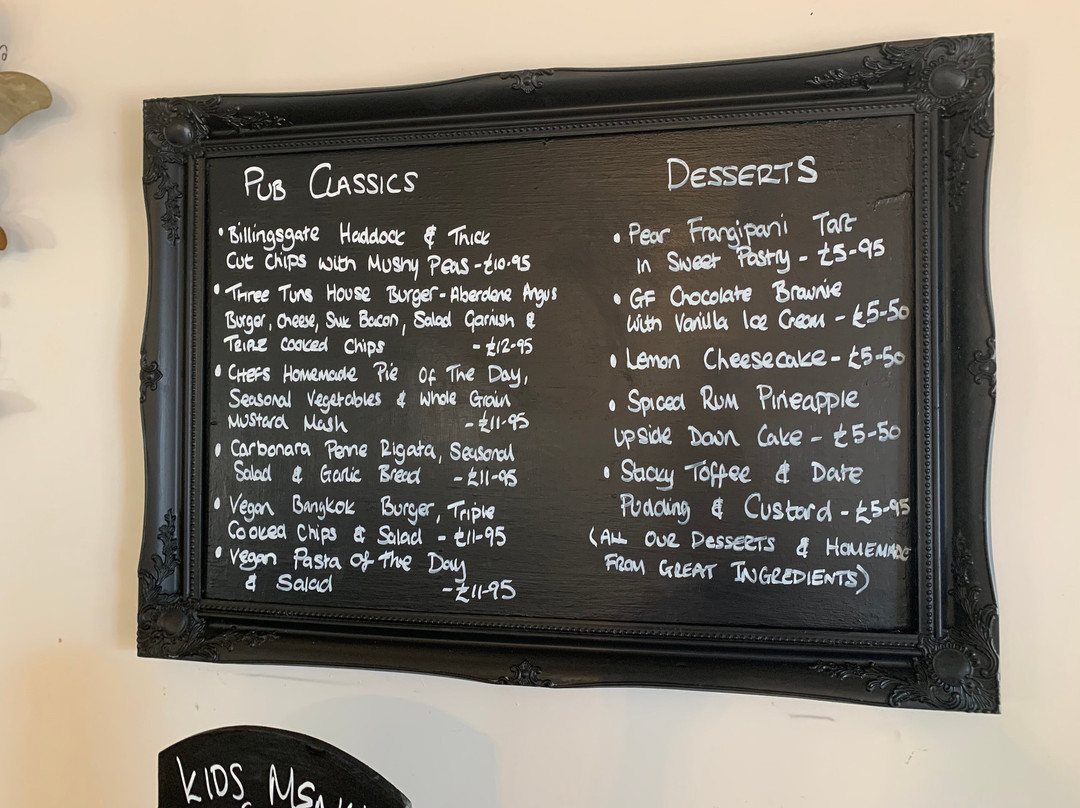 PUB CLASSICS
• Billingsgate Haddock & Thick
Cut Chips with Mushy Peas - £10.95
• Three Tuns House Burger - Aberdene Angus
Burger, Cheese, Bacon, Salad Garnish &
Cooked Chips - £12-95
• Chefs Homemade Pie of The Day,
Seasonal Vegetables & Whole Grain
Mustard Mash - £11-95
• Carbonara Penne Rigata, Seasonal
Salad & Garlic Bread - £11-95
• Vegan Bangkok Burger, Triple
Cooked Chips & Salad - £11-95
• Vegan Pasta of The Day
& Salad - £11-95
DESSERTS
• Pear Frangipani Tart
in Sweet Pastry - £5-95
• GF Chocolate Brownie
with Vanilla Ice Cream - £5-50
• Lemon Cheesecake - £5-50
• Spiced Rum Pineapple
Upside Down Cake - £5-50
• Sticky Toffee & Date
Pudding & Custard - £5-95
(ALL OUR DESSERTS & HOMEMADE
FROM GREAT INGREDIENTS)
KIDS MENU